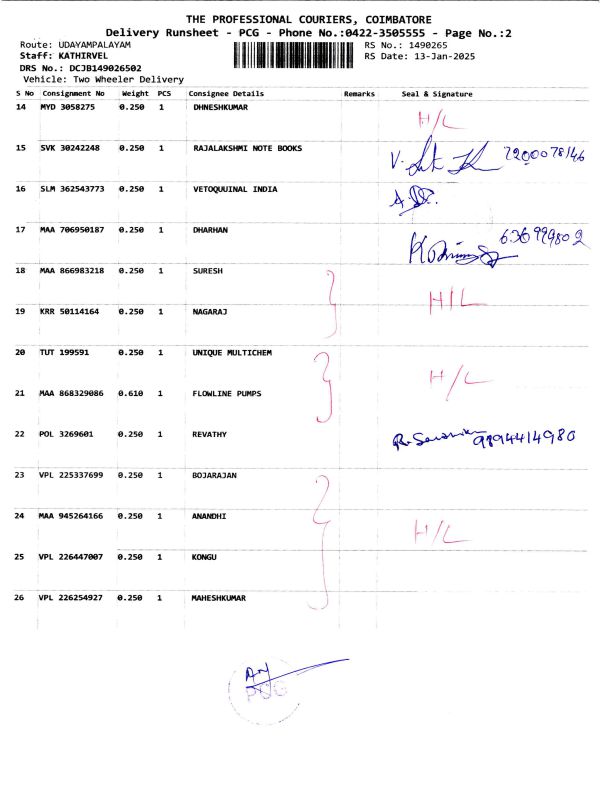 THE PROFESSIONAL COURIERS, COIMBATORE
Delivery Runsheet - PCG - Phone No.:0422-3505555 - Page No.:2
Route: UDAYAMPALAYAM RS No.: 1490265
Staff: KATHIRVEL RS Date: 13-Jan-2025
DRS No.: DCJB149026502
Vehicle: Two Wheeler Delivery
S No Consignment No Weight PCS Consignee Details Remarks Seal & Signature
14 MYD 3058275 0.250 1 DHNESHKUMAR
H/L
15 SVK 30242248 0.250 1 RAJALAKSHMI NOTE BOOKS
7200078146
16 SLM 362543773 0.250 1 VETOQUUINAL INDIA
17 MAA 706950187 0.250 1 DHARHAN
18 MAA 866983218 0.250 1 SURESH
H/L
19 KRR 50114164 0.250 1 NAGARAJ
20 TUT 199591 0.250 1 UNIQUE MULTICHEM
H/L
21 MAA 868329086 0.610 1 FLOWLINE PUMPS
22 POL 3269601 0.250 1 REVATHY
9894414980
23 VPL 225337699 0.250 1 BOJARAJAN
24 MAA 945264166 0.250 1 ANANDHI
H/L
25 VPL 226447007 0.250 1 KONGU
26 VPL 226254927 0.250 1 MAHESHKUMAR
PCG